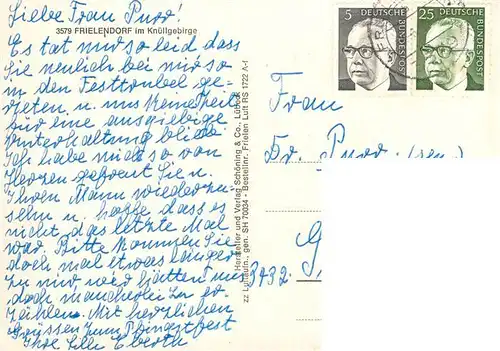 Liebe Frau Purr!
3579 FRIELENDORF im Knüllgebirge
Es tat mir so leid dass
Sie neulich bei mir so
in den Festtrubel ge-
rieten u. uns keine Zeit
für eine ausgiebige
Unterhaltung bliebe
Ich habe mich so von
Herzen gefreut Sie u.
Ihren Mann wiederzu-
sehn u. hoffe dass es
nicht das letzte Mal
war. Bitte kommen Sie
doch mal etwas länger
zu mir wir hätten uns
doch mancherlei zu er-
zählen. Mit herzlichen
Grüssen zum Pfingstfest
Ihre Lilli Eberth
Hersteller und Verlag Schöning & Co., Lübeck
zz Luftaufn., gen. SH 70034 - Bestellnr. Frielen Luft RS 1722 A-f
5 DEUTSCHE BUNDESPOST
25 DEUTSCHE BUNDESPOST
Frau
Dr. Purr (sen)
3432 G